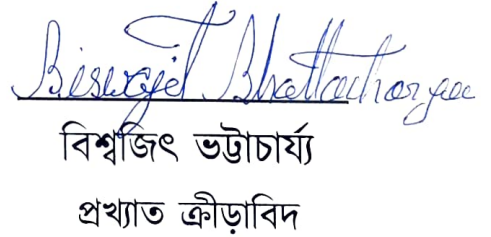 Biswajit Bhattacharyee
বিশ্বজিৎ ভট্টাচার্য্য
প্রখ্যাত ক্রীড়াবিদ